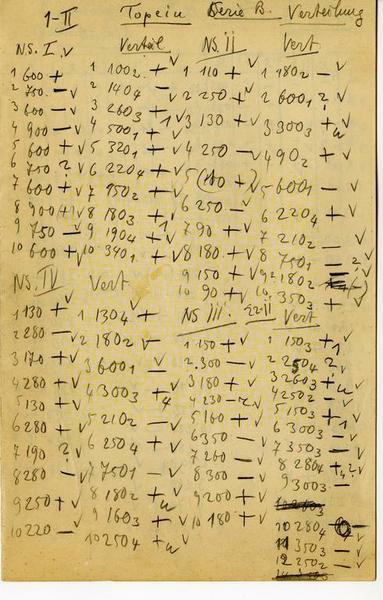 1-II Topein Serie B. Verteilung
NS. I. v Verteil NS. II Vert
1 600 + 1 1002 + v 1 110 + v 1 1802 — v
2 750 — v 2 1404 — v 2 250 + v 2 6001 2 v
3 600 — v 3 2603 + 3 130 + v 3 3003 +
4 900 — v 4 5001 + v 4 250 — v 4 902 + v
5 600 + v 5 3201 + v 5 (100 +) v 5 6001 — v
6 750 ? v 6 2204 + v 6 250 — v 6 2204 + v
7 600 + v 7 1502 — v 7 90 + v 7 2102 — v
8 900 + v 8 1803 + 8 180 + v 8 7501 — v
9 750 — v 9 1904 + v 9 150 + v 9 1802
10 600 + v 10 3401 + v 10 90 + v 10 3503 +
NS. IV Vert NS. III. 22-II Vert
1 130 + v 1 1304 + v 1 150 + v 1 1503 +
2 280 — v 2 1802 — v 2 300 — v 2 2504 2 v
3 170 + v 3 6001 — v 3 180 + v 3 2603 +
4 280 + v 4 3003 + 4 230 — v 4 2502 — v
5 130 + v 5 2102 — v 5 160 + v 5 1503 +
6 280 + v 6 2504 + v 6 350 — v 6 3003 — v
7 190 ? v 7 7501 — v 7 260 — v 7 3503 — v
8 280 — v 8 1802 + 8 300 — v 8 2804 +
9 250 + v 9 1603 + v 9 200 + v 9 3003 —
10 220 — v 10 2504 + 10 180 + v 10 2804 +
11 3503 — v
12 2502 — v